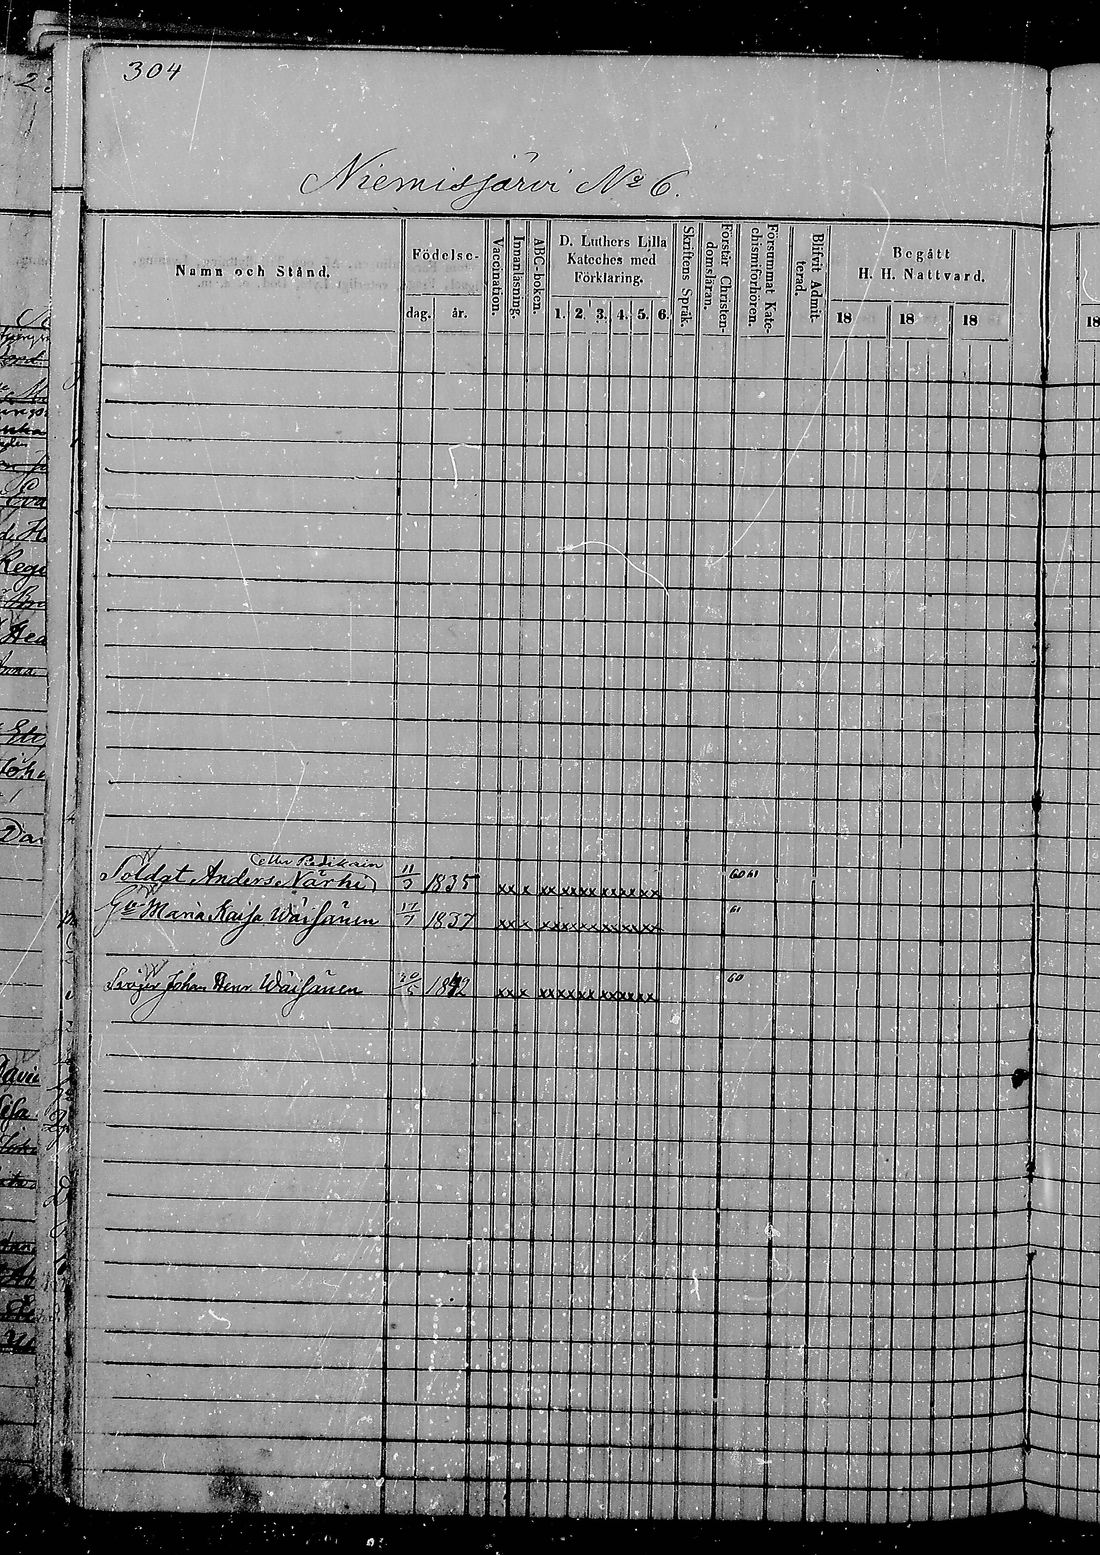 304
Niemisjärvi No 6.
Namn och Stånd.
Födelse-
dag. år.
Vaccination.
Innanläsning.
ABC-boken.
D. Luthers Lilla
Kateches med
Förklaring.
1. 2. 3. 4. 5. 6.
Skriftens Språk.
Förstår Christen-
domsläran.
Försummat Kate-
chismiförhören.
Blifvit Admit-
terad.
Begått
H. H. Nattvard.
18 18 18
18
eller Pedikain
Soldat Anders Närhi 11/3 1835 xx x x xx xx xx xx xx xx 60 61
Maria Kaisa Wäisänen 17/7 1837 xx x x xx xx xx xx xx xx 61
Johan Henr Wäisänen 20/5 1842 xx x x xx xx xx xx xx xx 60